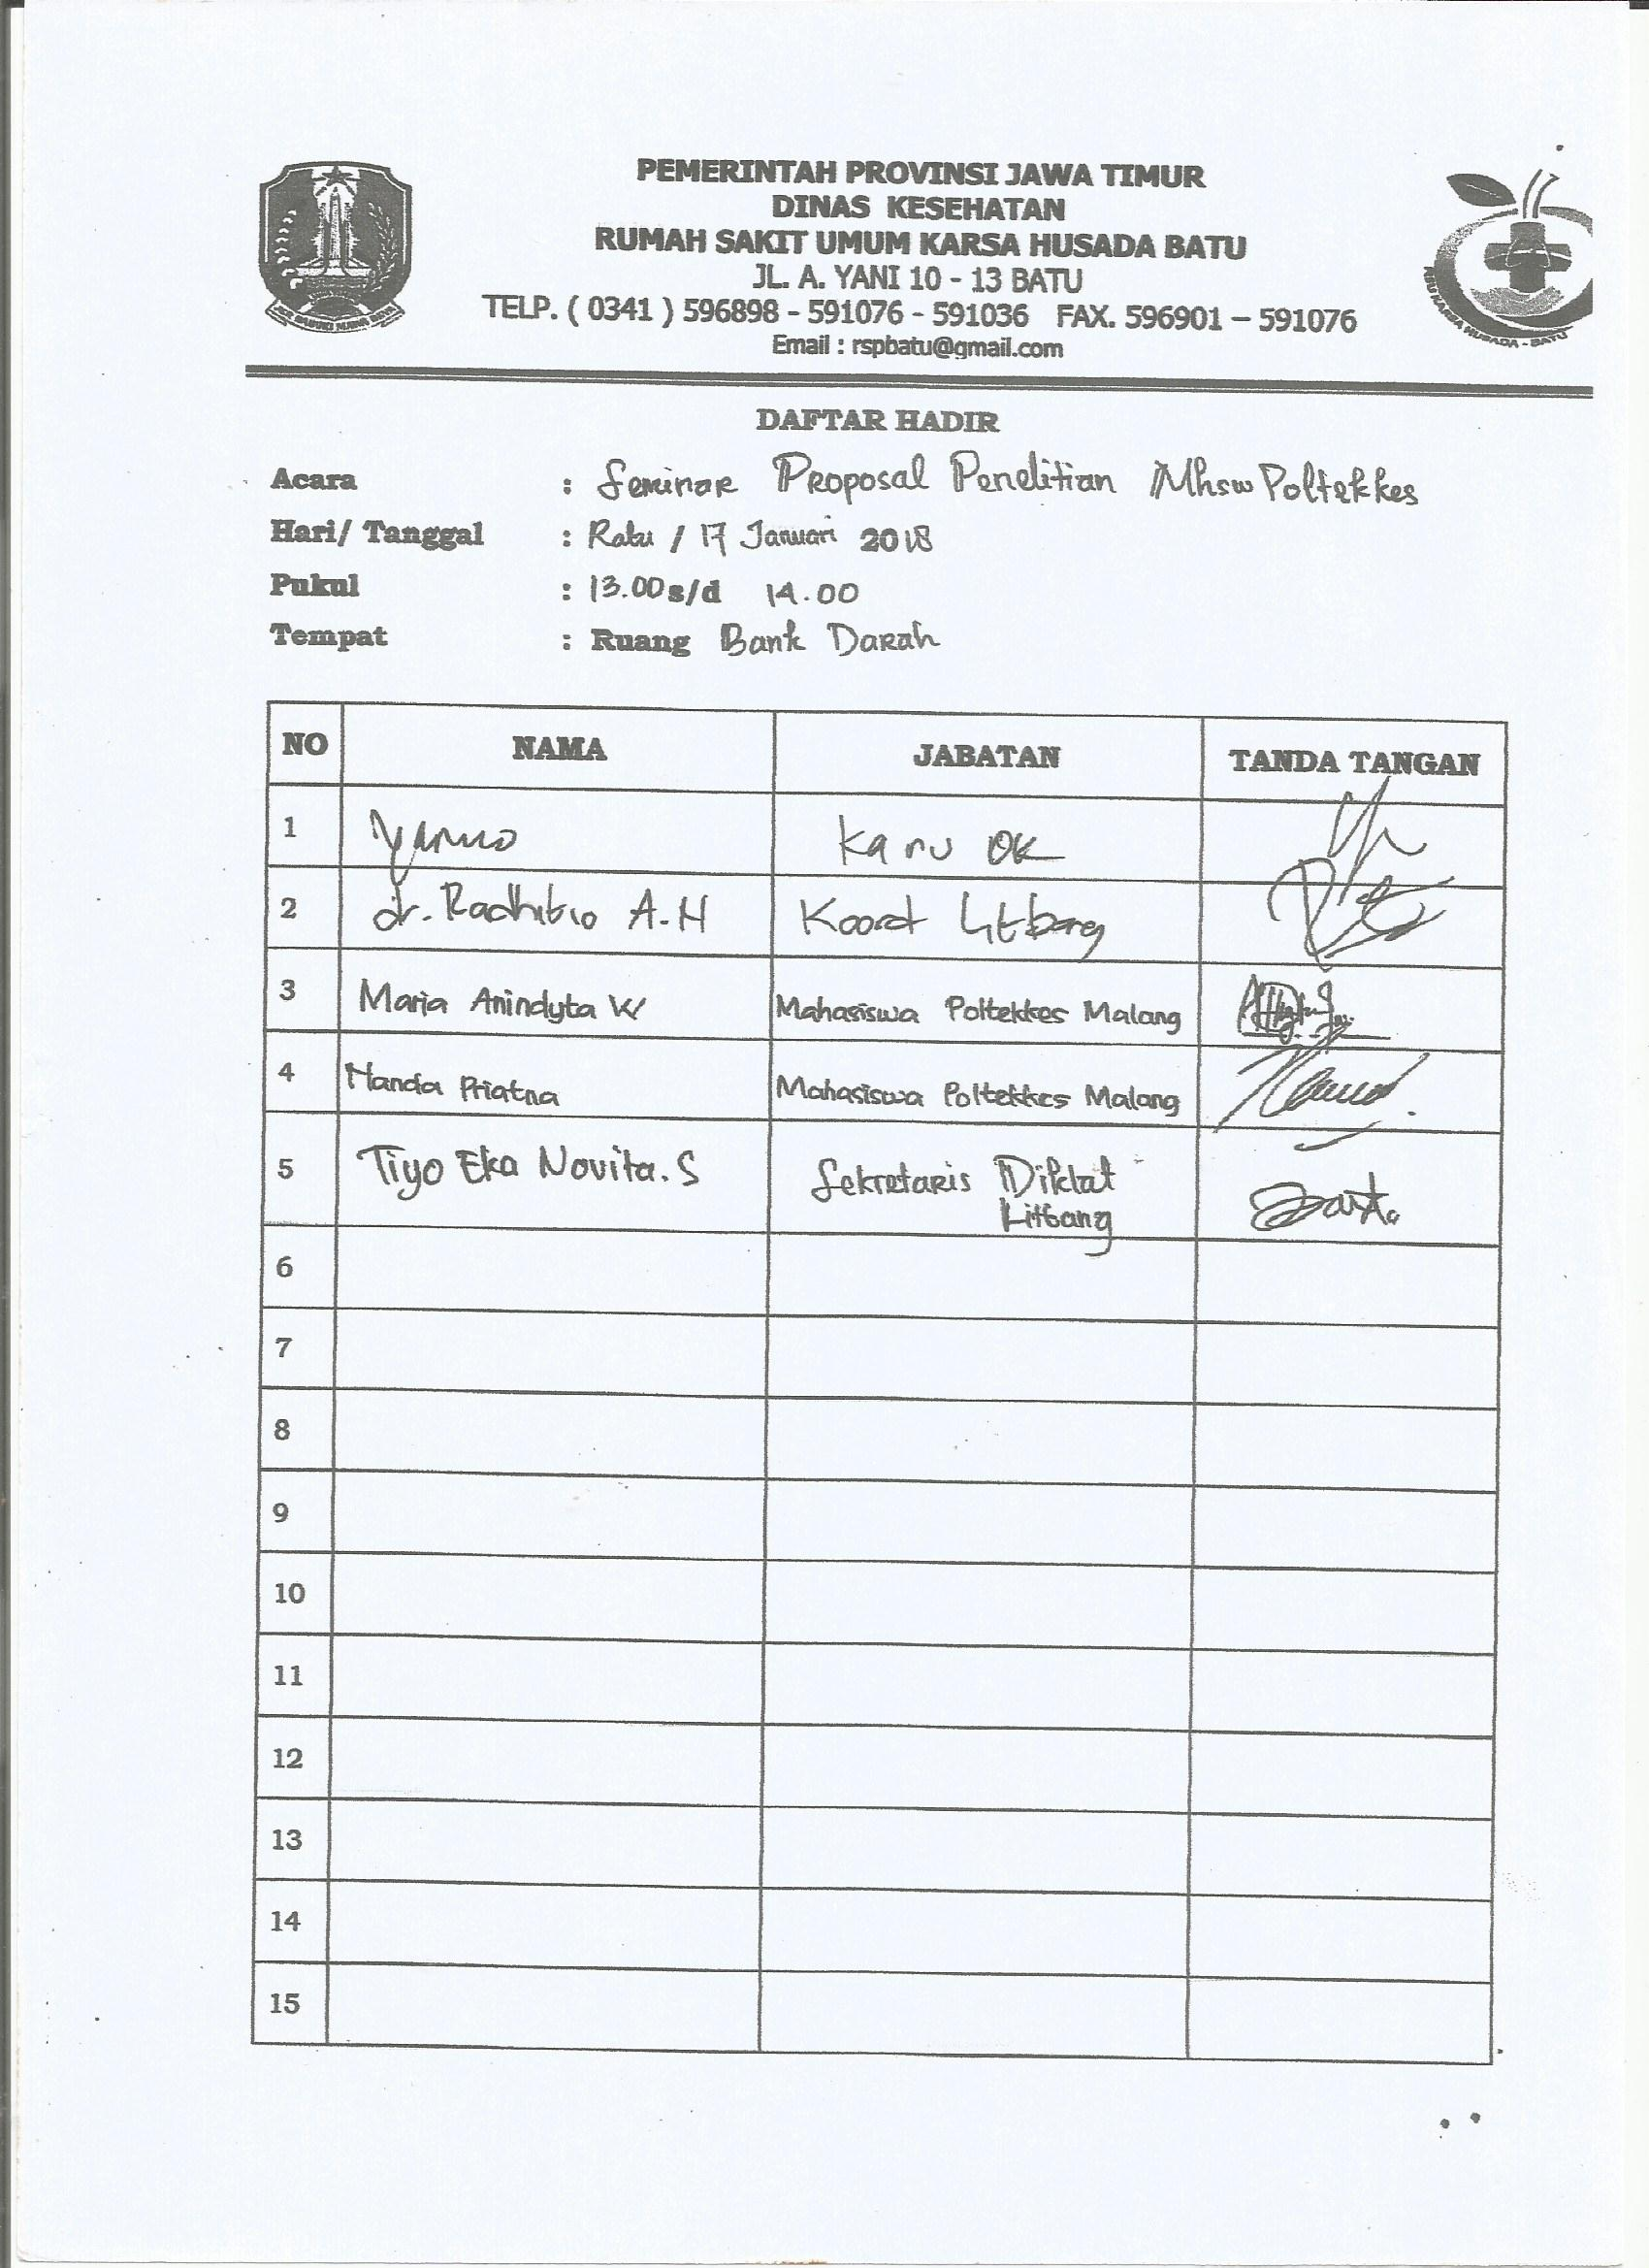 PEMERINTAH PROVINSI JAWA TIMUR
DINAS KESEHATAN
RUMAH SAKIT UMUM KARSA HUSADA BATU
JL. A. YANI 10 - 13 BATU
TELP. ( 0341 ) 596898 - 591076 - 591036 FAX. 596901 – 591076
Email : rspbatu@gmail.com
DAFTAR HADIR
Acara : Seminar Proposal Penelitian Mhsw Poltekkes
Hari/ Tanggal : Rabu / 17 Januari 2018
Pukul : 13.00 s/d 14.00
Tempat : Ruang Bank Darah
NO NAMA JABATAN TANDA TANGAN
1 Karu OK
2 dr. A.H Koord Litbang
3 Maria Anindyta W Mahasiswa Poltekkes Malang
4 Nanda Priatna Mahasiswa Poltekkes Malang
5 Tiyo Eka Novita. S Sekretaris Diklat
Litbang
6
7
8
9
10
11
12
13
14
15